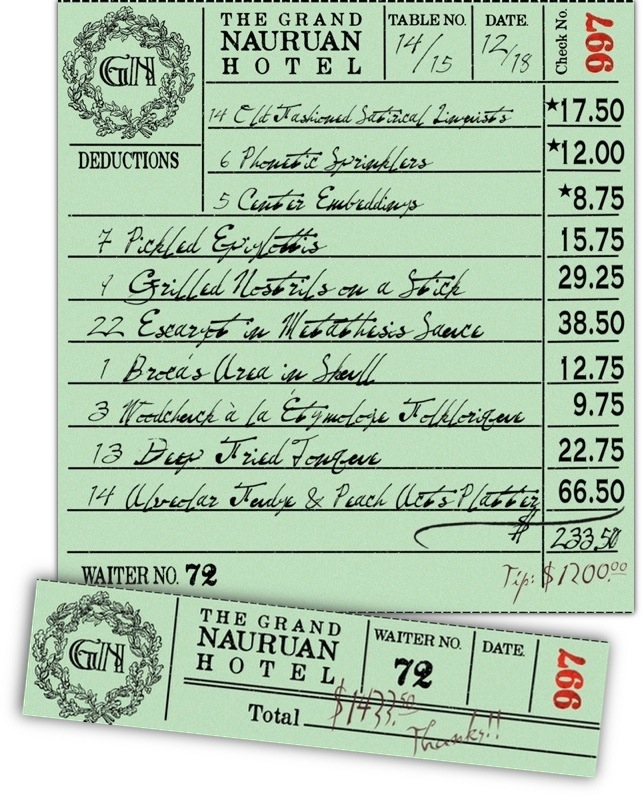 THE GRAND
NAURUAN
HOTEL
TABLE NO.
14/15
DATE.
12/18
Check No.
997
GN
DEDUCTIONS
14 Old Fashioned Satirical Linguists ★17.50
6 Phonetic Sprinklers ★12.00
5 Center Embeddings ★8.75
7 Pickled Epiglottis 15.75
9 Grilled Nostrils on a Stick 29.25
22 Escargot in Metathesis Sauce 38.50
1 Broca's Area in Skull 12.75
3 Woodchuck à la Étymologie Folklorique 9.75
13 Deep Fried Tongue 22.75
14 Alveolar Fudge & Peach Platter 66.50
$ 233.50
WAITER NO. 72
Tip: $1200.00
GN
THE GRAND
NAURUAN
HOTEL
WAITER NO.
72
DATE.
997
Total $1433.50
Thanks!!